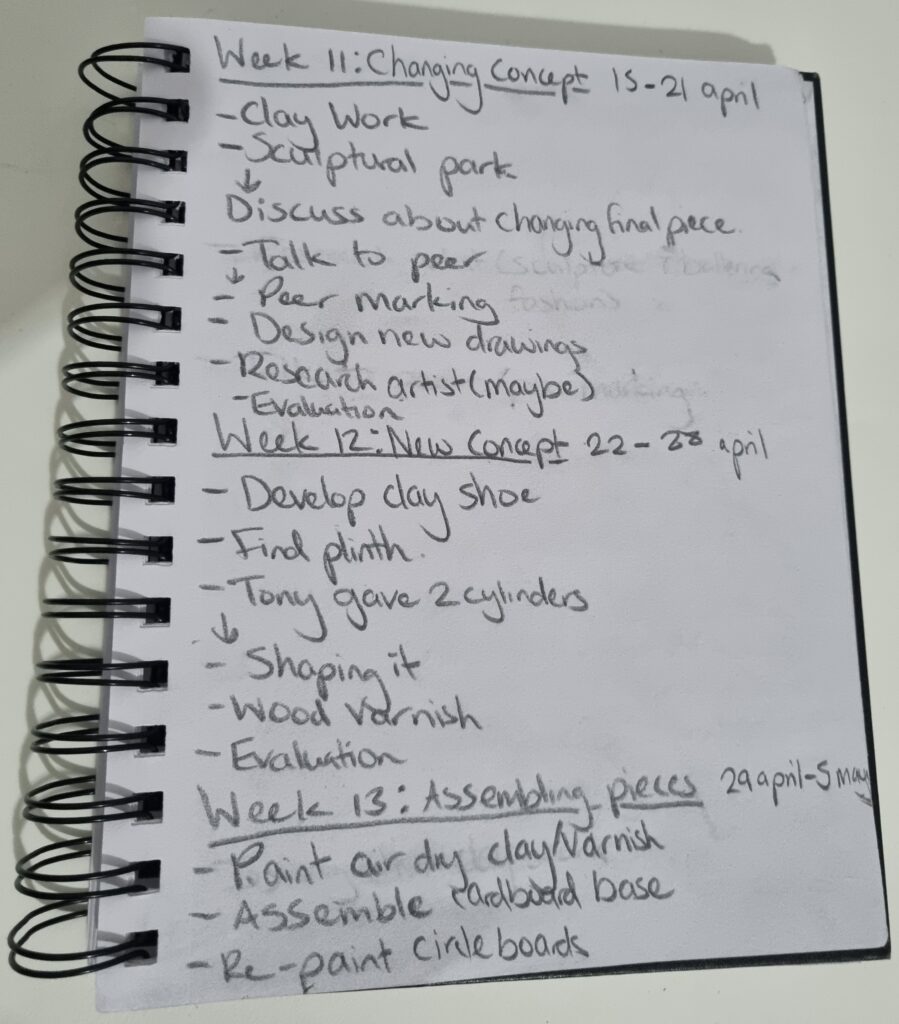 Week 11: Changing Concept 15-21 april
- Clay Work
- Sculptural park
↓
Discuss about changing final piece.
- Talk to peer
↓
- Peer marking
- Design new drawings
- Research artist (maybe)
- Evaluation
Week 12: New Concept 22-28 april
- Develop clay shoe
- Find plinth.
- Tony gave 2 cylinders
↓
- Shaping it
- Wood varnish
- Evaluation
Week 13: Assembling pieces 29 april-5 may
- Paint air dry clay/Varnish
- Assemble cardboard base
- Re-paint circle boards